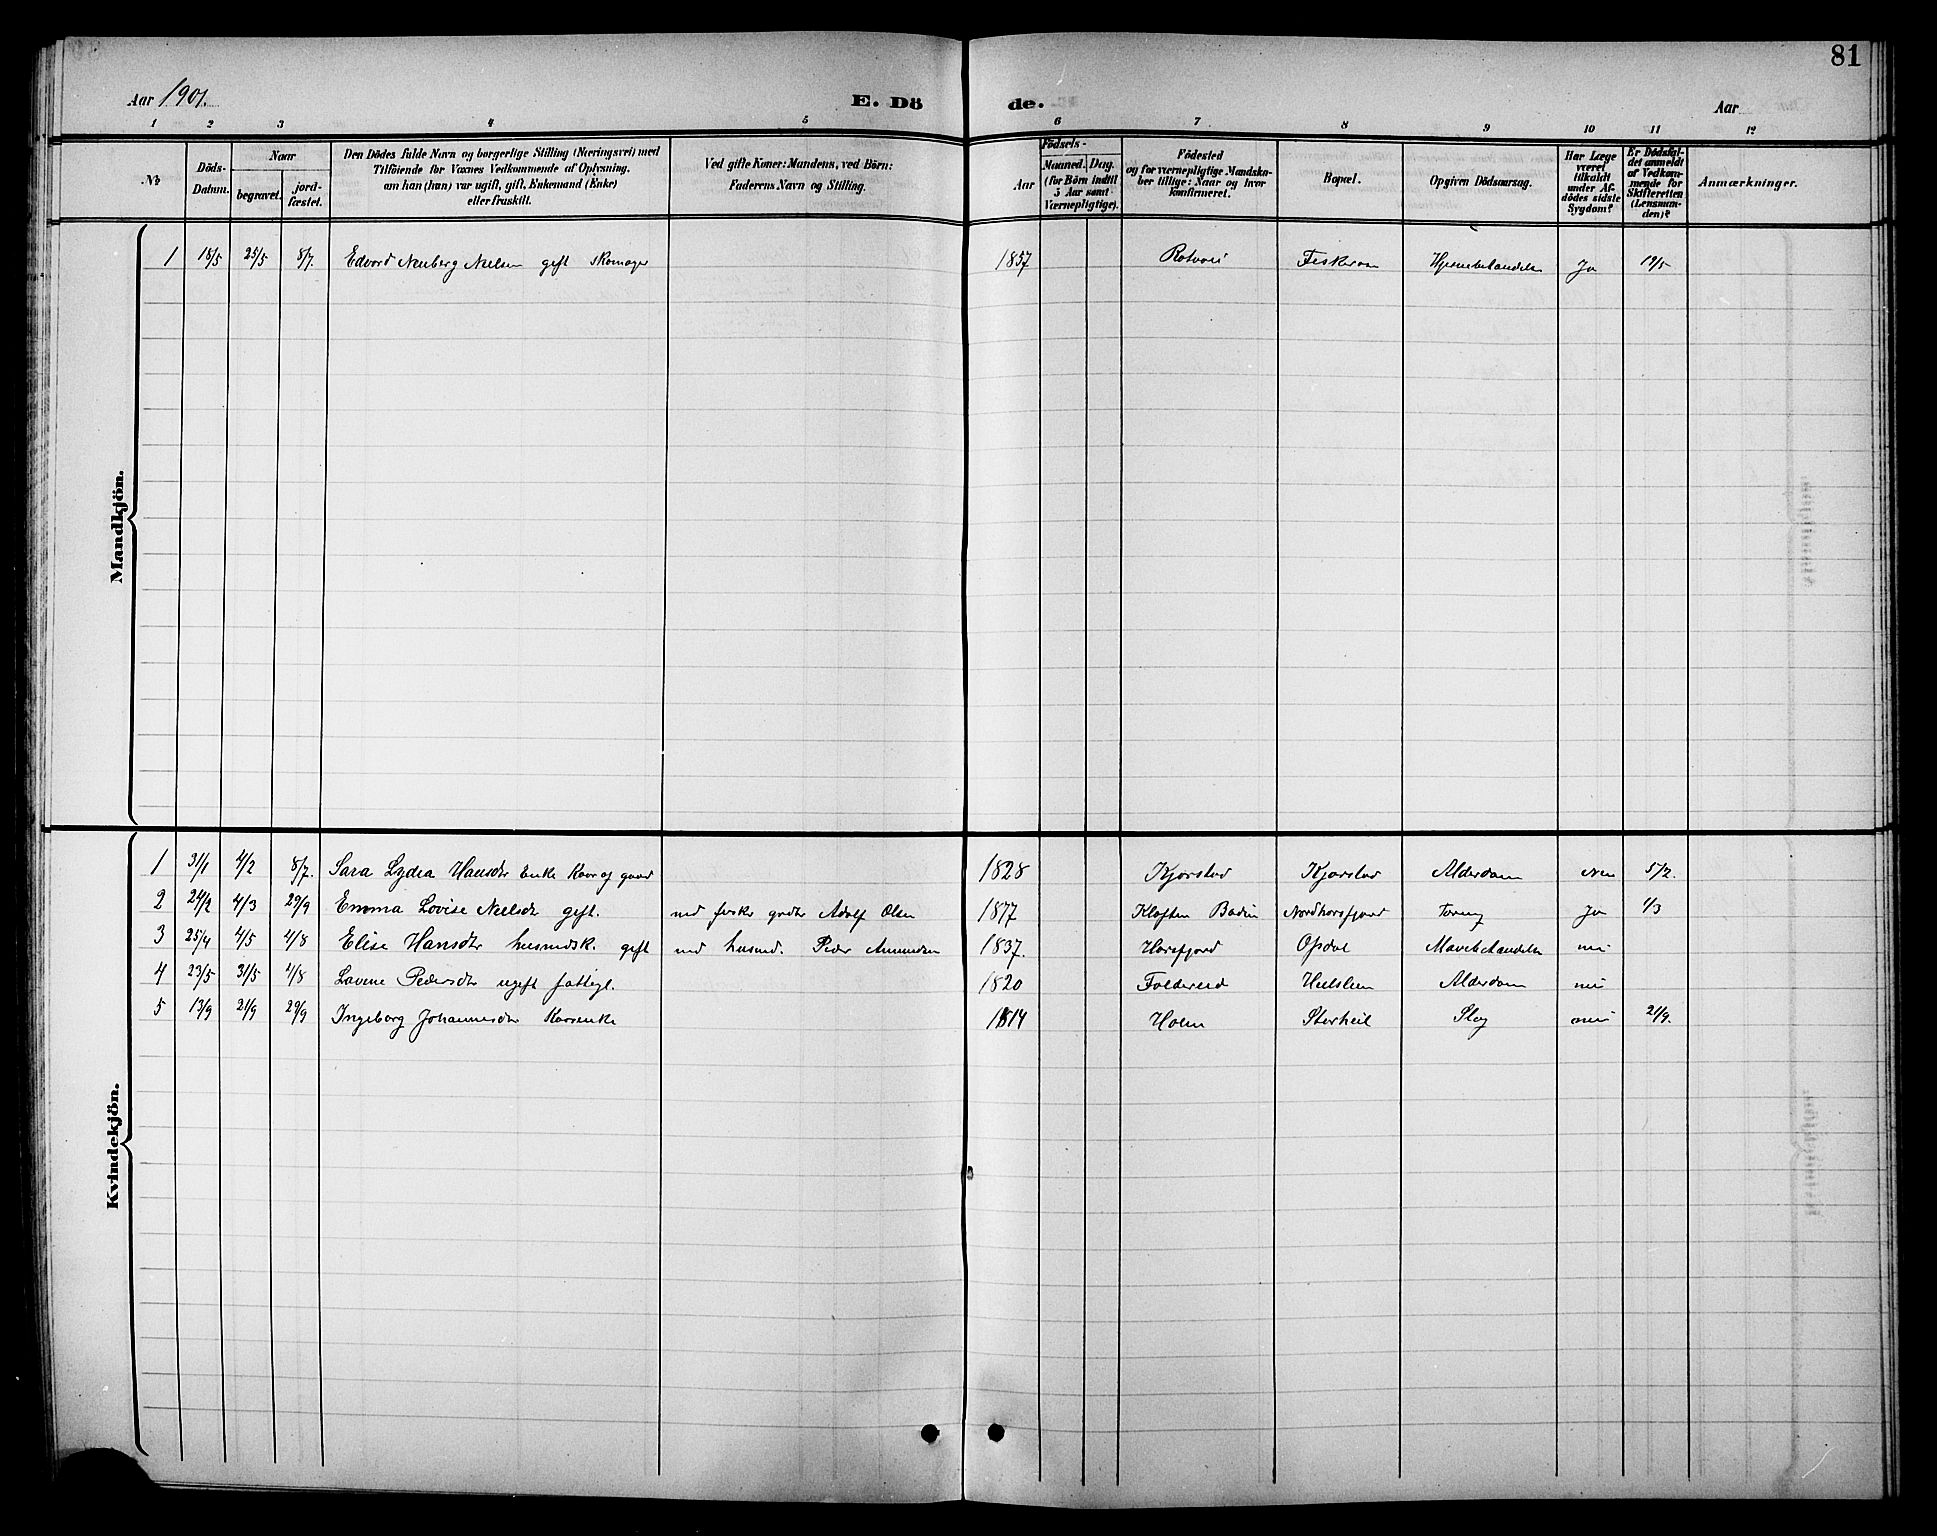 81
Aar 1901. E. Dö de. Aar
1 2 3 4 5 6 7 8 9 10 11 12
No
Döds-Datum.
Naar
begravet. jordfæstet.
Den Dödes fulde Navn og borgerlige Stilling (Næringsvei) med
Tilföiende for Voxnes Vedkommende af Oplysning,
om han (hun) var ugift, gift, Enkemand (Enke)
eller fraskilt.
Ved gifte Koner: Mandens, ved Börn:
Faderens Navn og Stilling.
Födsels-
Aar
Maaned. Dag.
(for Börn indtil
5 Aar samt
Værnepligtige).
Födested
og for værnepligtige Mandska-
ber tillige: Naar og hvor
konfirmeret.
Bopæl.
Opgiven Dödsaarsag.
Har Læge
været
tilkaldt
under Af-
dödes sidste
Sygdom?
Er Dödsfal-
det anmeldt
af Vedkom-
mende for
Skifteretten
(Lensman-
den)?
Anmærkninger.
Mandkjön.
1 18/5 25/5 8/7. Edvard Neuberg Nielsen gift skomager 1857 Rotvoei Fiskerosen Ja 19/5
Kvindekjön.
1 31/1 4/2 8/7. Sara Lydia Hansdtr enke 1828 Kjørstad Kjørstad Alderdom Nei 5/2.
2 24/2 4/3 29/9 Emma Lovise Neelsdtr gift. med fisker Adolf Olsen 1877 Kloften Bodin Nordhorsfjord Tæring Ja 1/3
3 25/4 4/5 4/8 Elise Hansdtr husmdsk. gift med husmd. Peder Amundsen 1837. Horsfjord Opdal nei
4 23/5 31/5 4/8 Lovine Pedersdtr ugift fattigl. 1820 Foldereid Alderdom nei
5 13/9 21/9 29/9 Ingeborg Johannesdtr Kaarenke 1814 Holm Storheil Slag nei 21/9.